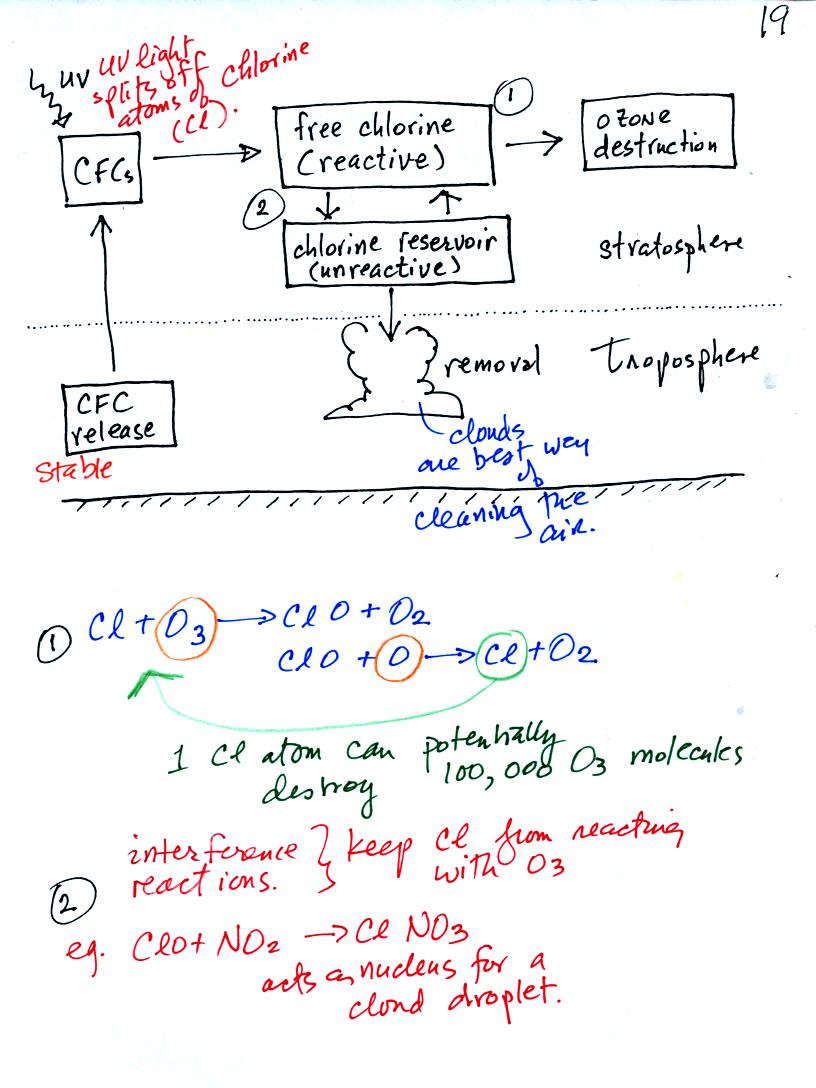 19
UV
UV light
splits off
atoms of Chlorine
(Cl).
CFCs
free chlorine
(reactive)
1
OZONE
destruction
2
chlorine reservoir
(unreactive)
stratosphere
removal
Troposphere
CFC
release
Stable
clouds
are best way
of
cleaning the
air.
1
Cl + O3 → ClO + O2
ClO + O → Cl + O2
1 Cl atom can potentially
destroy 100,000 O3 molecules
interference } keep Cl from reacting
reactions. with O3
2
eg. ClO + NO2 → Cl NO3
acts as nucleus for a
cloud droplet.